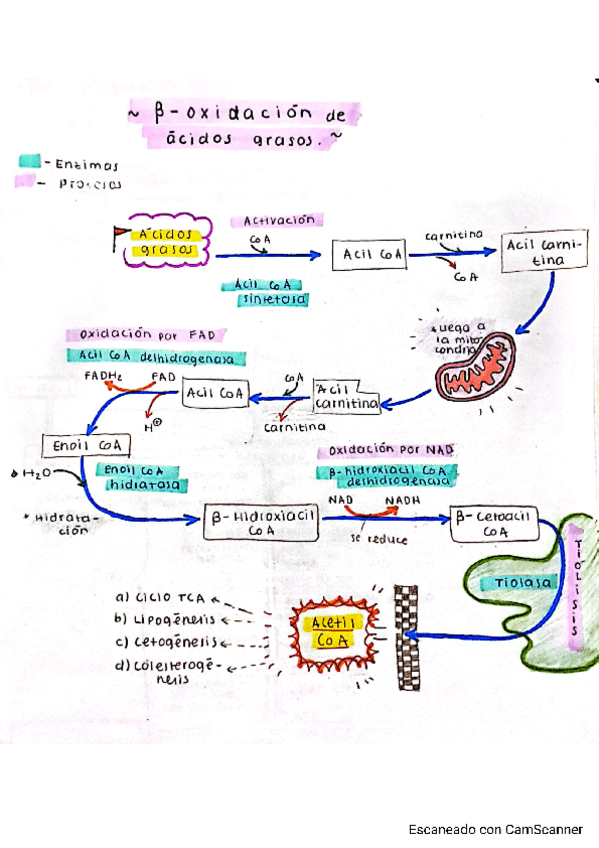 ~ β-oxidación de
ácidos grasos. ~
- Enzimas
- Procesos
Ácidos
grasos
Activación
CoA
Acil CoA
sintetasa
Acil CoA
carnitina
CoA
Acil carni-
tina
Luega a
la mito
condria
Acil
carnitina
CoA
carnitina
Acil CoA
Oxidación por FAD
Acil CoA deshidrogenasa
FADH₂
FAD
H⊕
Enoil CoA
H₂O
Enoil CoA
hidratasa
* Hidrata-
ción
β-Hidroxiacil
CoA
Oxidación por NAD
β-hidroxiacil CoA
deshidrogenasa
NAD
NADH
se reduce
β-Cetoacil
CoA
Tiolasa
TIÓLISIS
Acetil
CoA
a) Ciclo TCA
b) Lipogénesis
c) Cetogénesis
d) Colesterogé-
nesis
Escaneado con CamScanner